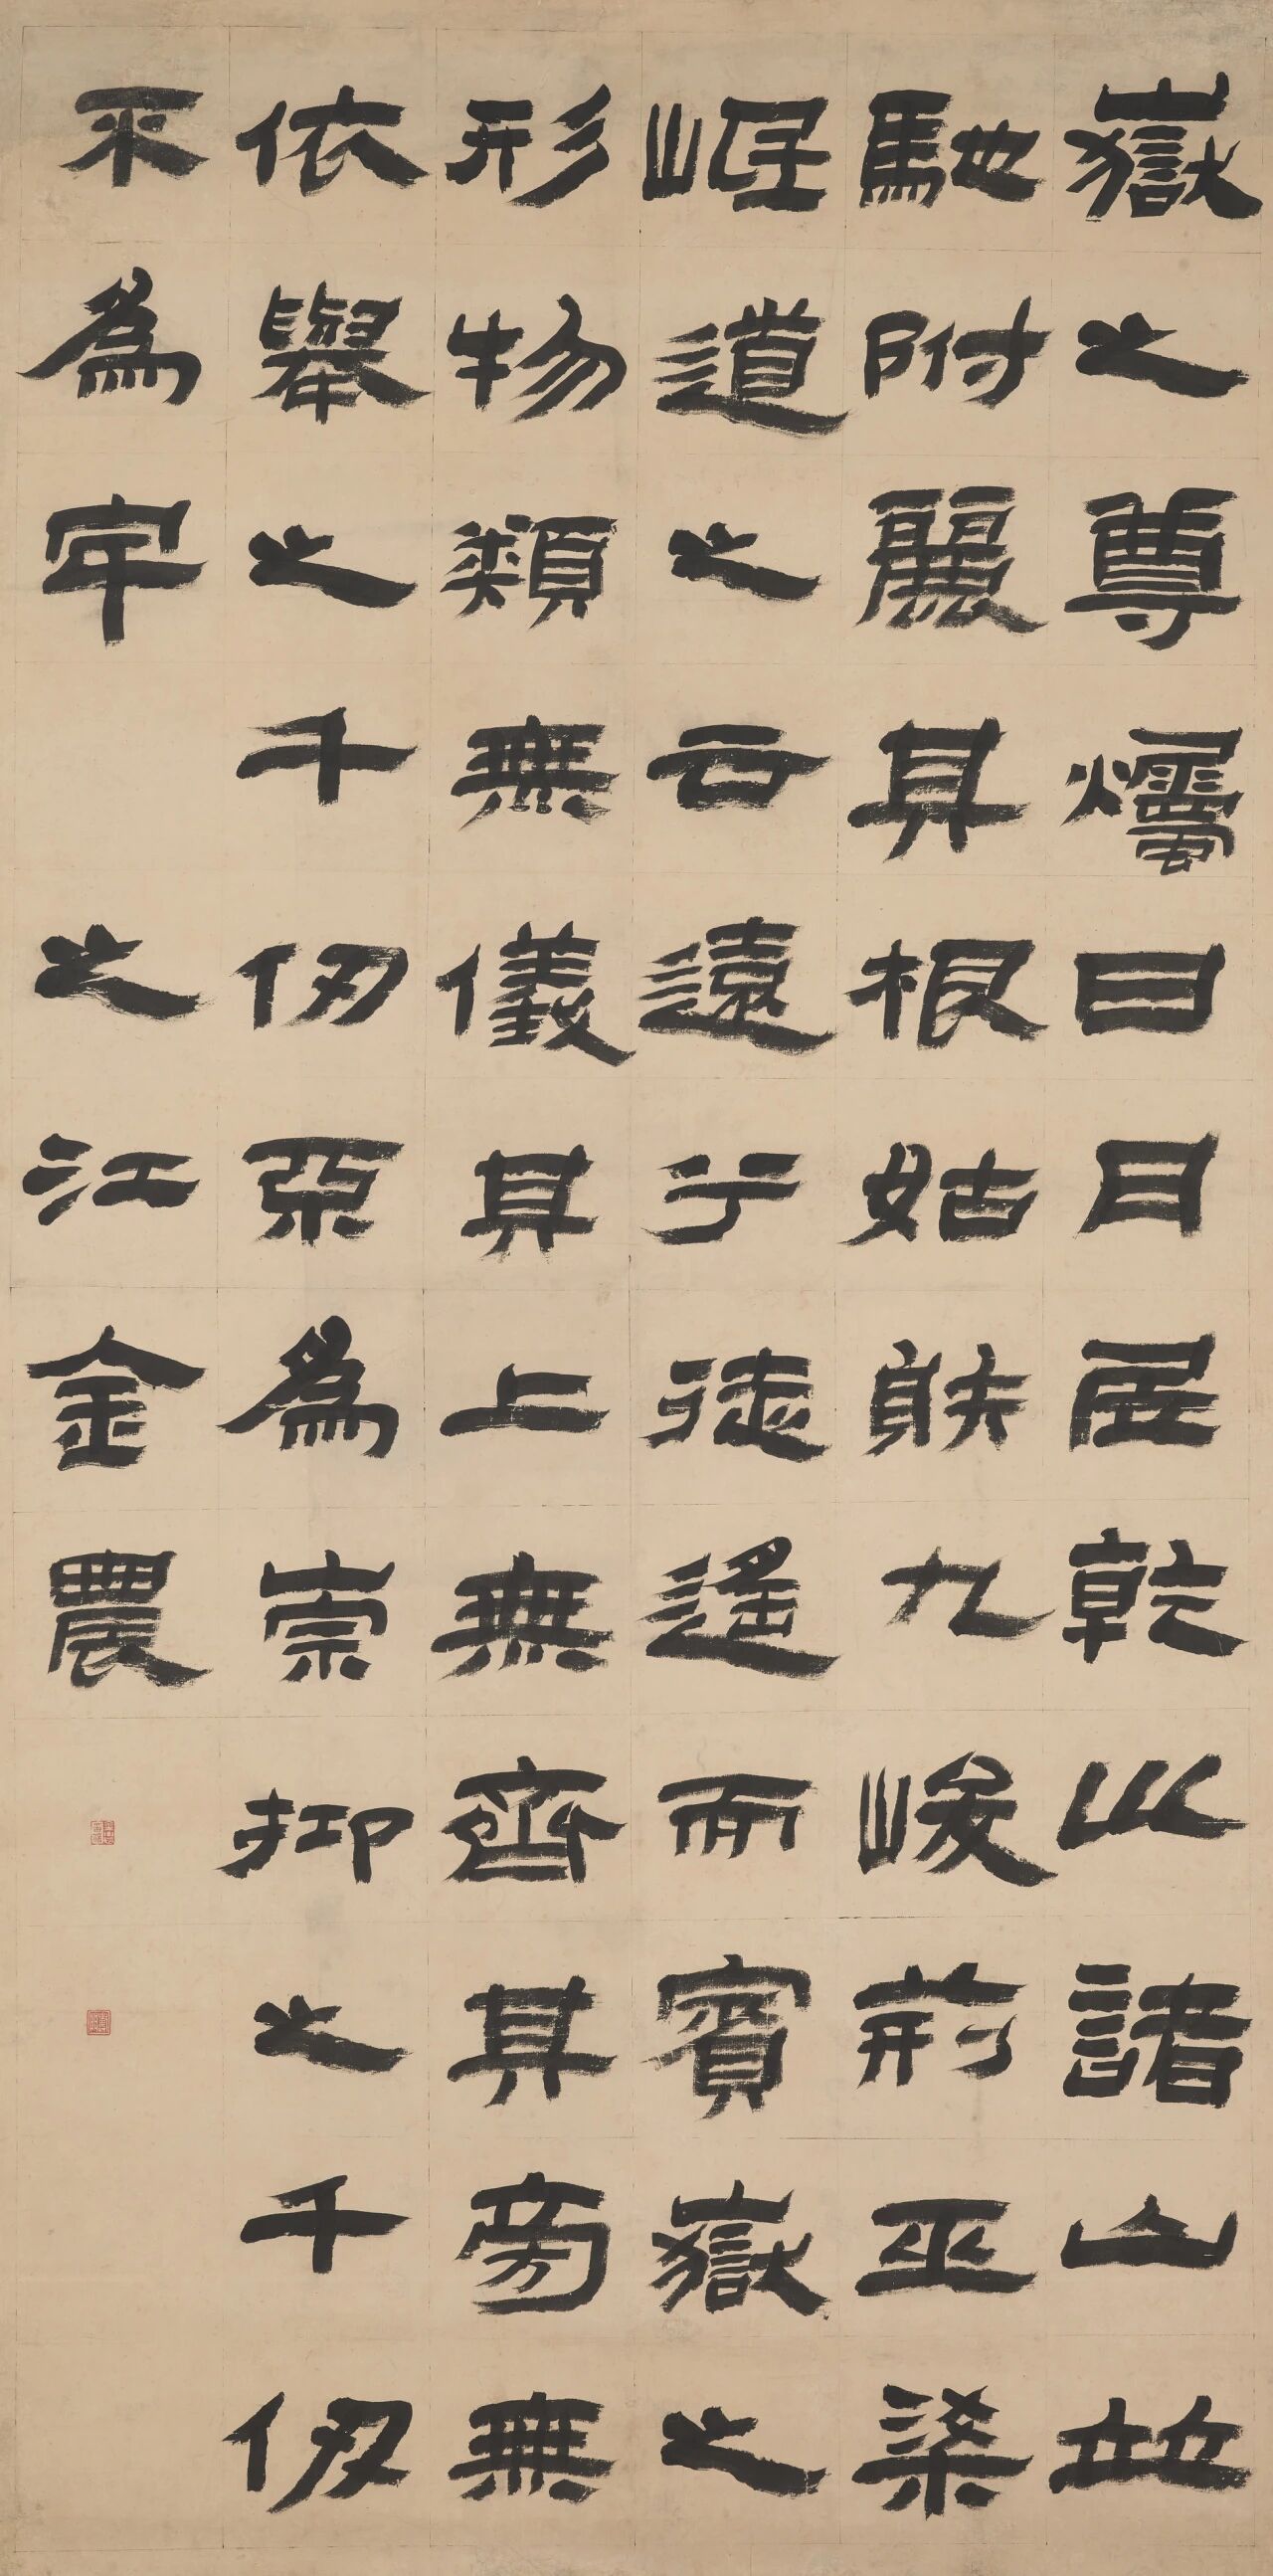 嶽之尊燭日月居乾巛諸山並
馳附麗其根姑䠶九峻荊巫梁
岷道之云遠乎徒遙而賓嶽之
形物類無儀其上無齊其旁無
依舉之千仞為崇抑之千仞
不為牢之江金農